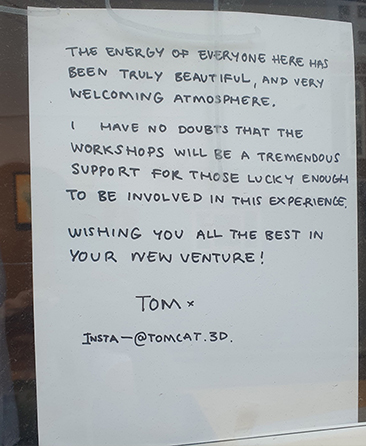 THE ENERGY OF EVERYONE HERE HAS
BEEN TRULY BEAUTIFUL, AND VERY
WELCOMING ATMOSPHERE.
I HAVE NO DOUBTS THAT THE
WORKSHOPS WILL BE A TREMENDOUS
SUPPORT FOR THOSE LUCKY ENOUGH
TO BE INVOLVED IN THIS EXPERIENCE.
WISHING YOU ALL THE BEST IN
YOUR NEW VENTURE!
TOM x
INSTA-@TOMCAT.3D.